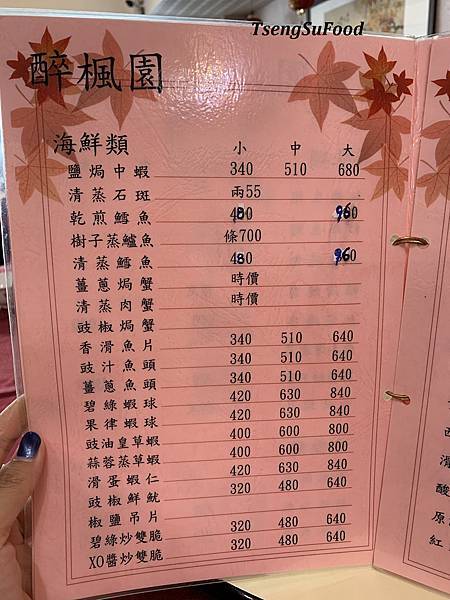 TsengSuFood
醉楓園
海鮮類 小 中 大
鹽焗中蝦 340 510 680
清蒸石斑 兩55
乾煎鱈魚 480 960
樹子蒸鱸魚 條700
清蒸鱈魚 480 960
薑蔥焗蟹 時價
清蒸肉蟹 時價
豉椒焗蟹
香滑魚片 340 510 640
豉汁魚頭 340 510 640
薑蔥魚頭 340 510 640
碧綠蝦球 420 630 840
果律蝦球 420 630 840
豉油皇草蝦 400 600 800
蒜蓉蒸草蝦 400 600 800
滑蛋蝦仁 420 630 840
豉椒鮮魷 320 480 640
椒鹽吊片
碧綠炒雙脆 320 480 640
XO醬炒雙脆 320 480 640
滑
酸
原
紅